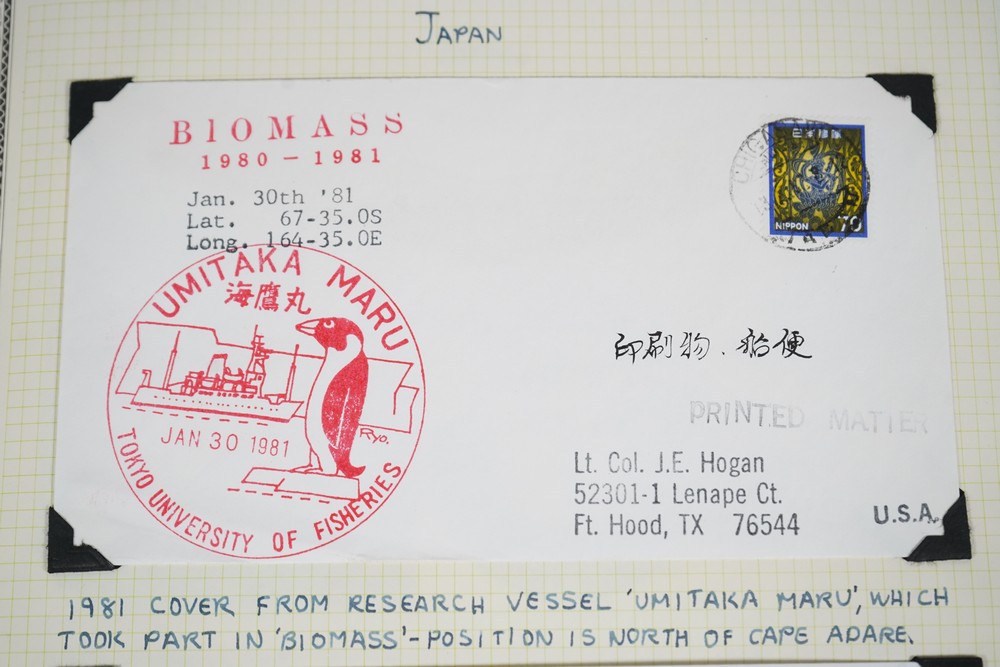 JAPAN
BIOMASS
1980 - 1981
Jan. 30th '81
Lat. 67-35.0S
Long. 164-35.0E
UMITAKA MARU
海鷹丸
JAN 30 1981
Ryo.
TOKYO UNIVERSITY OF FISHERIES
日本郵便
NIPPON 70
印刷物、船便
PRINTED MATTER
Lt. Col. J.E. Hogan
52301-1 Lenape Ct.
Ft. Hood, TX 76544
U.S.A.
1981 COVER FROM RESEARCH VESSEL 'UMITAKA MARU', WHICH
TOOK PART IN 'BIOMASS' - POSITION IS NORTH OF CAPE ADARE.